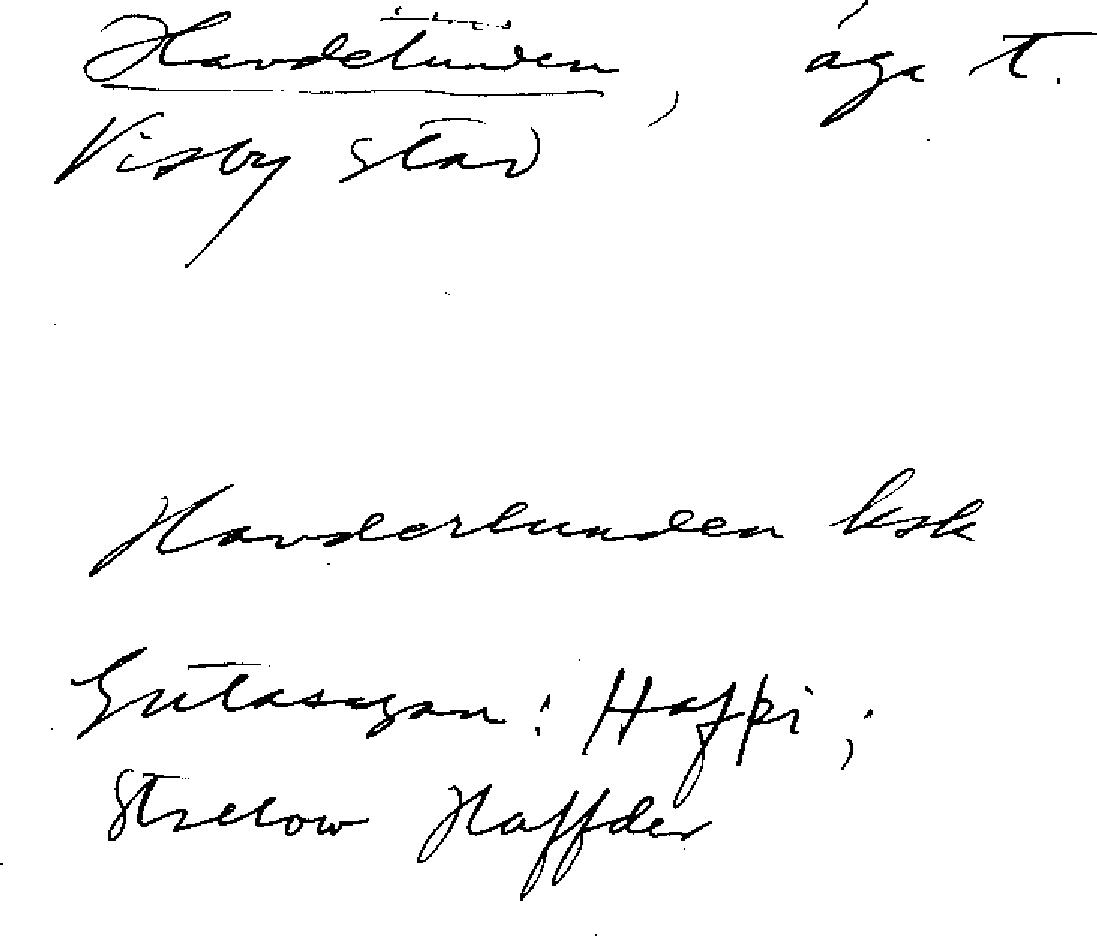 Havdetunden, äga t.
Visby stad
Havderlunden ksk
Gutasagan: Hafþi;
Strelow Haffder